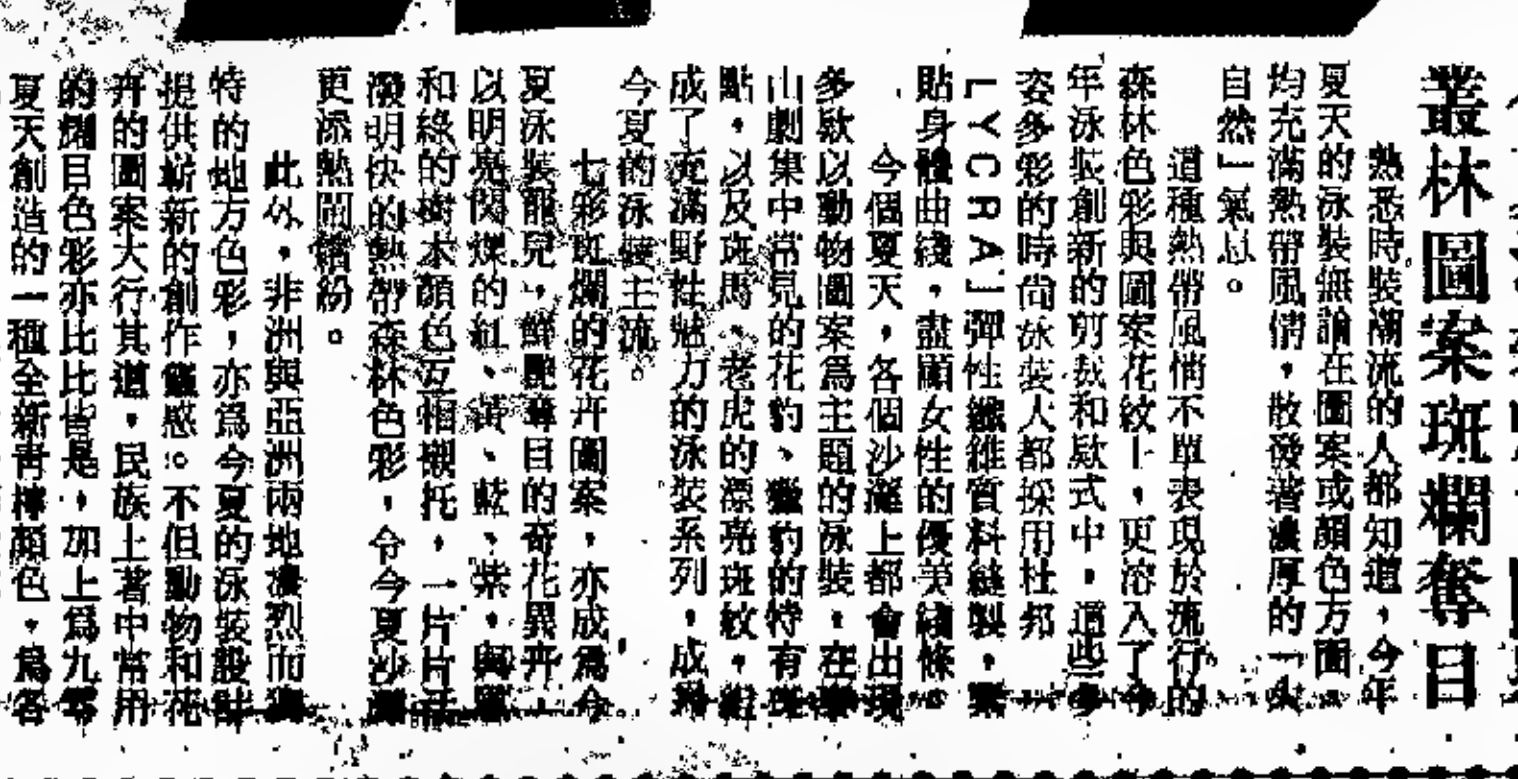 叢林圖案斑斕奪目
熱悉時裝潮流的人都知道，今年
夏天的泳裝無論在圖案或顏色方面，
均充滿熱帶風情，散發着濃厚的「大
自然」氣息。
這種熱帶風情不單表現於流行的
森林色彩與圖案花紋上，更溶入了今
年泳裝創新的剪裁和欵式中，這些多
姿多彩的時尚泳裝大都採用杜邦「
LYCRA」彈性纖維質料縫製，緊
貼身體曲綫，盡顯女性的優美綫條。
今個夏天，各個沙灘上都會出現
多欵以動物圖案爲主題的泳裝，在
山劇集中常見的花豹、獵豹的特有斑
點，以及斑馬、老虎的漂亮斑紋，組
成了充滿野性魅力的泳裝系列，成爲
今夏的泳裝主流。
七彩斑斕的花卉圖案，亦成爲今
夏泳裝寵兒，鮮艷奪目的奇花異卉，
以明亮閃爍的紅、黃、藍、紫，與
和綠的樹木顏色互相襯托，一片片
潑明快的熱帶森林色彩，令今夏沙灘
更添熱鬧繽紛。
此外，非洲與亞洲兩地濃烈而獨
特的地方色彩，亦爲今夏的泳裝設計
提供嶄新的創作靈感。不但動物和花
卉的圖案大行其道，民族土著中常用
的爛目色彩亦比比皆是，加上爲九零
夏天創造的一種全新青檸顏色，爲各